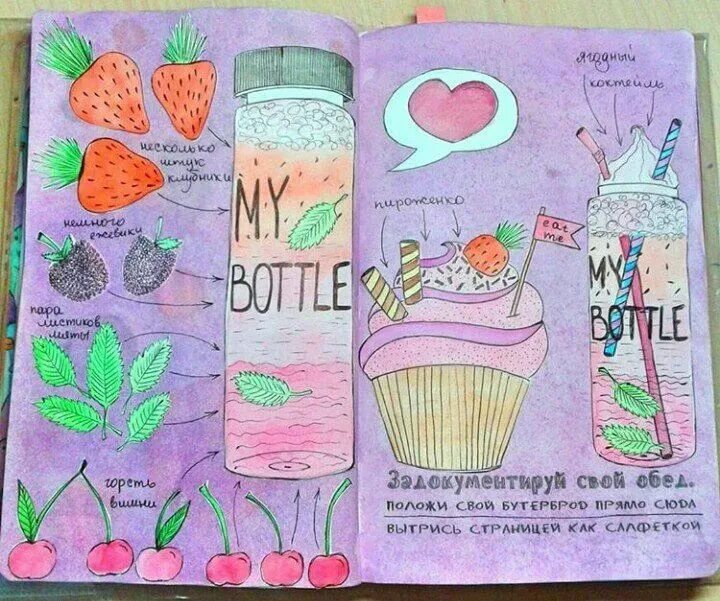 несколько
штук
клубники
MY
BOTTLE
немного
ежевики
пара
листиков
мяты
горсть
вишни
ягодный
коктейль
пироженко
eat
me
MY
BOTTLE
Задокументируй свой обед.
ПОЛОЖИ СВОЙ БУТЕРБРОД ПРЯМО СЮДА
ВЫТРИСЬ СТРАНИЦЕЙ КАК САЛФЕТКОЙ